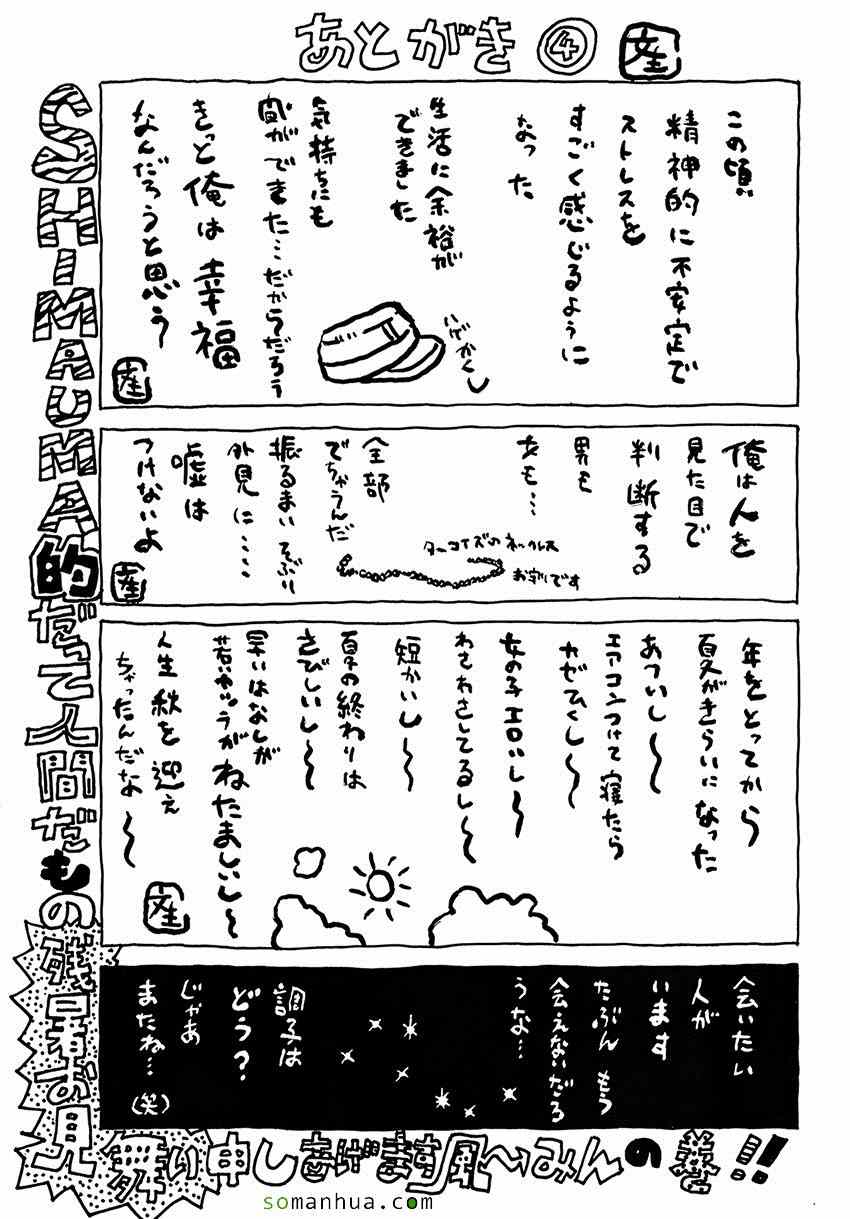 あとがき④
SHIMAUMA的だって人間だもの
残暑お見舞い申しあげます風へみんの巻!!
この頃
精神的に不安定で
ストレスを
すごく感じるように
なった
生活に余裕が
できました
気持ちにも
間がでまた…だからだろう
きっと俺は幸福
なんだろうと思う
いげかくし
俺は人を
見た目で
判断する
男も
女も…
全部
でちゃうんだ
振るまい そぶり
外見に……
嘘は
つけないよ
ターコイズのネックレス
お守りです
年をとってから
夏がきらいになった
あついし〜
エアコンつけて寝たら
カゼひくし〜
女の子エロいし〜
わさわさしてるし〜
短かいし〜
夏の終わりは
さびしいし〜
早いはなしが
若いヤツらがねたましいし〜
人生秋を迎え
ちゃったんだな〜
会いたい
人が
います
たぶんもう
会えないだろ
うな…
調子は
どう?
じゃあ
またね…(笑)
somanhua.com